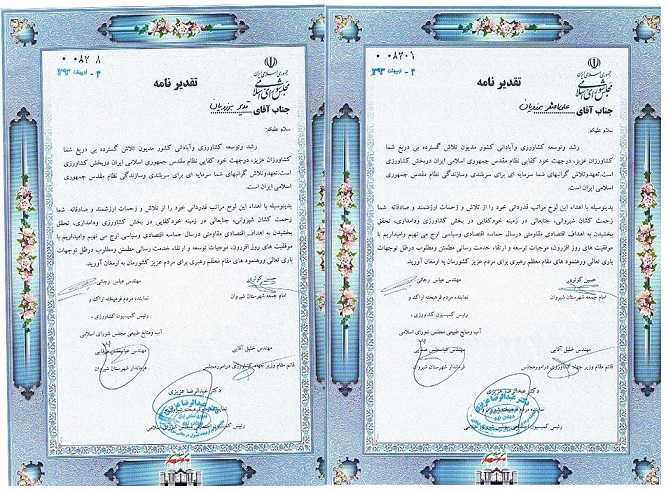 جمهوری اسلامی ایران
مجلس شورای اسلامی
تقدیر نامه
جناب آقای
سلام علیکم؛
رشد وتوسعه کشاورزی وآبادانی کشور مدیون تلاش گسترده بی دریغ شما
کشاورزان عزیز، درجهت خود کفایی نظام مقدس جمهوری اسلامی ایران دربخش کشاورزی
است.تعهدوتلاش گرانبهای شما سرمایه ای برای سربلندی وسازندگی نظام مقدس
اسلامی ایران است.
بدینوسیله با اهداء این لوح مراتب قدردانی خود را از تلاش و زحمات ارزشمند و صادقانه شما
زحمت کشان شیروانی، جنابعالی در زمینه خودکفایی در بخش کشاورزی ودامداری، تحقق
بخشیدن به اهداف اقتصادی مقاومتی درسال حماسه اقتصادی وسیاسی ارج می نهیم وامیداریم با
موفقیت های روز افزون، موجبات توسعه و ارتقاء خدمت رسانی مطمئن ومطلوب درظل توجهات
باری تعالی ورهنمود های مقام معظم رهبری برای مردم عزیز کشورمان به ارمغان آورید.
مهندس عباس رجائی
امام جمعه شهرستان شیروان
نماینده مردم فرهیخته اراک و
رئیس کمیسیون کشاورزی ،
آب ومنابع طبیعی مجلس شورای اسلامی
مهندس خلیل آقایی
قائم مقام وزیر جهاد کشاورزی درامورمجلس
فرماندار شهرستان شیروان
دکتر عبدالرضا عزیزی
جمهوری اسلامی ایران
مجلس شورای اسلامی
تقدیر نامه
جناب آقای
سلام علیکم؛
رشد وتوسعه کشاورزی وآبادانی کشور مدیون تلاش گسترده بی دریغ شما
کشاورزان عزیز، درجهت خود کفایی نظام مقدس جمهوری اسلامی ایران دربخش کشاورزی
است.تعهدوتلاش گرانبهای شما سرمایه ای برای سربلندی وسازندگی نظام مقدس جمهوری
اسلامی ایران است.
بدینوسیله با اهداء این لوح مراتب قدردانی خود را از تلاش و زحمات ارزشمند و صادقانه شما
زحمت کشان شیروانی، جنابعالی در زمینه خودکفایی در بخش کشاورزی ودامداری، تحقق
بخشیدن به اهداف اقتصادی مقاومتی درسال حماسه اقتصادی وسیاسی ارج می نهیم وامیداریم با
موفقیت های روز افزون، موجبات توسعه و ارتقاء خدمت رسانی مطمئن ومطلوب درظل توجهات
باری تعالی ورهنمود های مقام معظم رهبری برای مردم عزیز کشورمان به ارمغان آورید.
مهندس عباس رجائی
امام جمعه شهرستان شیروان
نماینده مردم فرهیخته اراک و
رئیس کمیسیون کشاورزی ،
آب ومنابع طبیعی مجلس شورای اسلامی
مهندس خلیل آقایی
قائم مقام وزیر جهاد کشاورزی درامورمجلس
فرماندار شهرستان شیروان
دکتر عبدالرضا عزیزی